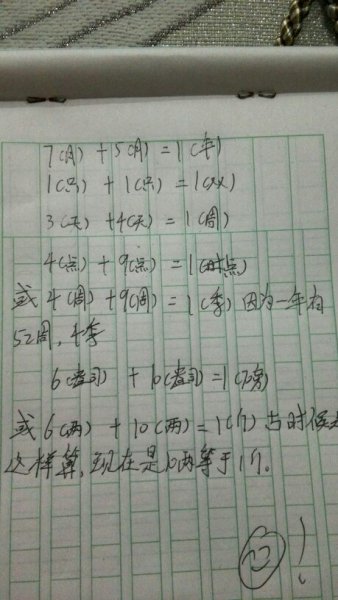 7(月) + 5(月) = 1(年)
1(只) + 1(只) = 1(双)
3(天) + 4(天) = 1(周)
4(点) + 9(点) = 1(点)
或 4(周) + 9(周) = 1(季) 因为一年有
52周,4季
6(盎司) + 10(盎司) = 1(磅)
或 6(两) + 10(两) = 1(斤) 古时候是
这样算,现在是10两等于1斤。
!